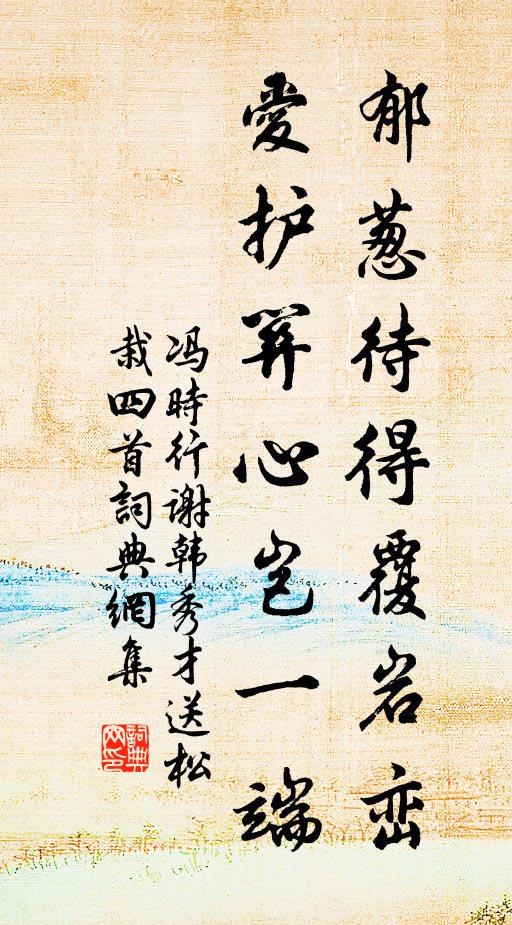 郁葱待得覆岩峦
愛护關心岂一端
冯時行谢韩秀才送松
栽四首詞典網集
詞典网印